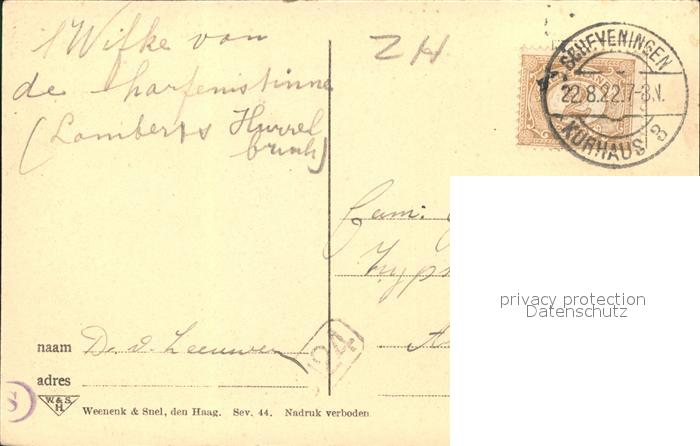 't Wifke van
de harfenistinne
(Lamberts Hurrel
brinck)
ZH
SCHEVENINGEN
22.8.22.7-8.V.
KURHAUS 3
Fam:
naam D. v. Leeuwen
24
adres
S
W&S
H
Weenenk & Snel, den Haag. Sev. 44. Nadruk verboden
privacy protection
Datenschutz